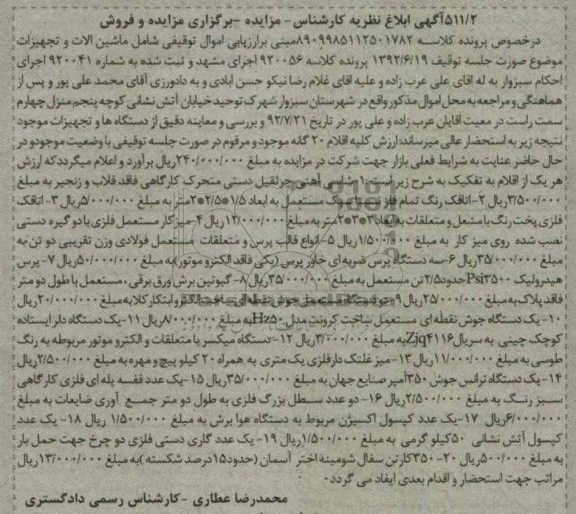 ۵۱۱/۲آگهی ابلاغ نظریه کارشناس- مزایده -برگزاری مزایده و فروش
درخصوص پرونده کلاسه ۸۹۰۹۹۸۵۱۱۲۵۰۱۷۸۲مبنی برارزیابی اموال توقیفی شامل ماشین الات و تجهیزات
موضوع صورت جلسه توقیف ۱۳۹۲/۶/۱۹ پرونده کلاسه ۹۲۰۰۵۶ اجرای مشهد و ثبت شده به شماره ۹۲۰۰۴۱ اجرای
احکام سبزوار به له اقای علی عرب زاده و علیه اقای غلام رضا نیکو حسن ابادی و به دادورزی آقای محمد علی پور و پس از
هماهنگی و مراجعه به محل اموال مذکور واقع در شهرستان سبزوار شهرک توحید خیابان آتش نشانی کوچه پنجم منزل چهارم
سمت راست در معیت آقایان عرب زاده و علی پور در تاریخ ۹۲/۷/۲۱ و بررسی و معاینه دقیق از دستگاه ها و تجهیزات موجود
نتیجه زیر به استحضار عالی میرساند:ارزش کلیه اقلام ۲۰ گانه موجود و مرقوم در صورت جلسه توقیفی با وضعیت موجود و در
حال حاضر عنایت به شرایط فعلی بازار جهت شرکت در مزایده به مبلغ ۲۴۰/۰۰۰/۰۰۰ریال برآورد و اعلام میگردد که ارزش
هر یک از اقلام به تفکیک به شرح زیر است:۱-شاسی آهنی جرثقیل دستی متحرک کارگاهی فاقد قلاب و زنجیر به مبلغ
۳/۵۰۰/۰۰۰ریال ۲-اتاقک رنگ تمام فلزی مستعمل به ابعاد ۱/۵*۲*۲/۵متر به مبلغ ۵/۰۰۰/۰۰۰ریال ۳- اتاقک
فلزی پخت رنگ با مشعل و متعلقات به ابعاد ۳*۲*۲متر به مبلغ ۱۲/۰۰۰/۰۰۰ریال ۴-میز کار مستعمل فلزی با دو گیره دستی
نصب شده روی میز کار به مبلغ ۱/۵۰۰/۰۰۰ریال ۵-انواع قالب پرس و متعلقات مستعمل فولادی وزن تقریبی دو تن به
مبلغ ۳۵/۰۰۰/۰۰۰ریال ۶-سه دستگاه پرس ضربه ای خاور پرس (یکی فاقد الکترو موتور)به مبلغ ۵۰/۰۰۰/۰۰۰ریال ۷- پرس
هیدرولیک Psi۳۵۰۰حدود۲/۵ تن مستعمل به مبلغ ۳۵/۰۰۰/۰۰۰ریال ۸- گیوتین برش ورق برقی ،مستعمل با طول دو متر
فاقد پلاک به مبلغ ۲۵/۰۰۰/۰۰۰ریال ۹-دو دستگاه مستعمل جوش نقطه ای ساخت الکترو ابتکار کلا به مبلغ ۲۰/۰۰۰/۰۰۰ریال
۱۰- یک دستگاه جوش نقطه ای مستعمل ساخت کرونت مدل Hz۵۰به مبلغ ۸/۰۰۰/۰۰۰ریال ۱۱-یک دستگاه دلر ایستاده
کوچک چینی به سریال Zjq۴۱۱۶به مبلغ ۳/۰۰۰/۰۰۰ریال ۱۲-دستگاه میکسر با متعلقات و الکترو موتور مربوطه به رنگ
طوسی به مبلغ ۱۱/۰۰۰/۰۰۰ریال ۱۳-میز غلتک دار فلزی یک متری به همراه ۲۰ کیلو پیچ و مهره به مبلغ ۲/۵۰۰/۰۰۰ریال
۱۴-یک دستگاه ترانس جوش ۳۵۰آمپر صنایع جهان به مبلغ ۳۵/۰۰۰/۰۰۰ریال ۱۵-یک عدد قفسه پله ای فلزی کارگاهی
سبز رنگ به مبلغ ۲/۵۰۰/۰۰۰ریال ۱۶- دو عدد سطل بزرگ فلزی به طول دو متر جمع آوری ضایعات به مبلغ
۶/۰۰۰/۰۰۰ریال ۱۷-یک عدد کپسول اکسیژن مربوط به دستگاه هوا برش به مبلغ ۱/۵۰۰/۰۰۰ ریال ۱۸- یک عدد
کپسول آتش نشانی ۵۰کیلو گرمی به مبلغ ۱/۵۰۰/۰۰۰ریال ۱۹-یک عدد گاری دستی فلزی دو چرخ جهت حمل بار
به مبلغ ۵۰۰/۰۰۰ریال ۲۰-۳۵۰کارتن سفال شومینه اختر آسمان (حدود۱۵درصد شکسته )به مبلغ ۱۳/۰۰۰/۰۰۰ریال
مراتب جهت استحضار و اقدام بعدی ایفاد می گردد.
محمدرضا عطاری -کارشناس رسمی دادگستری